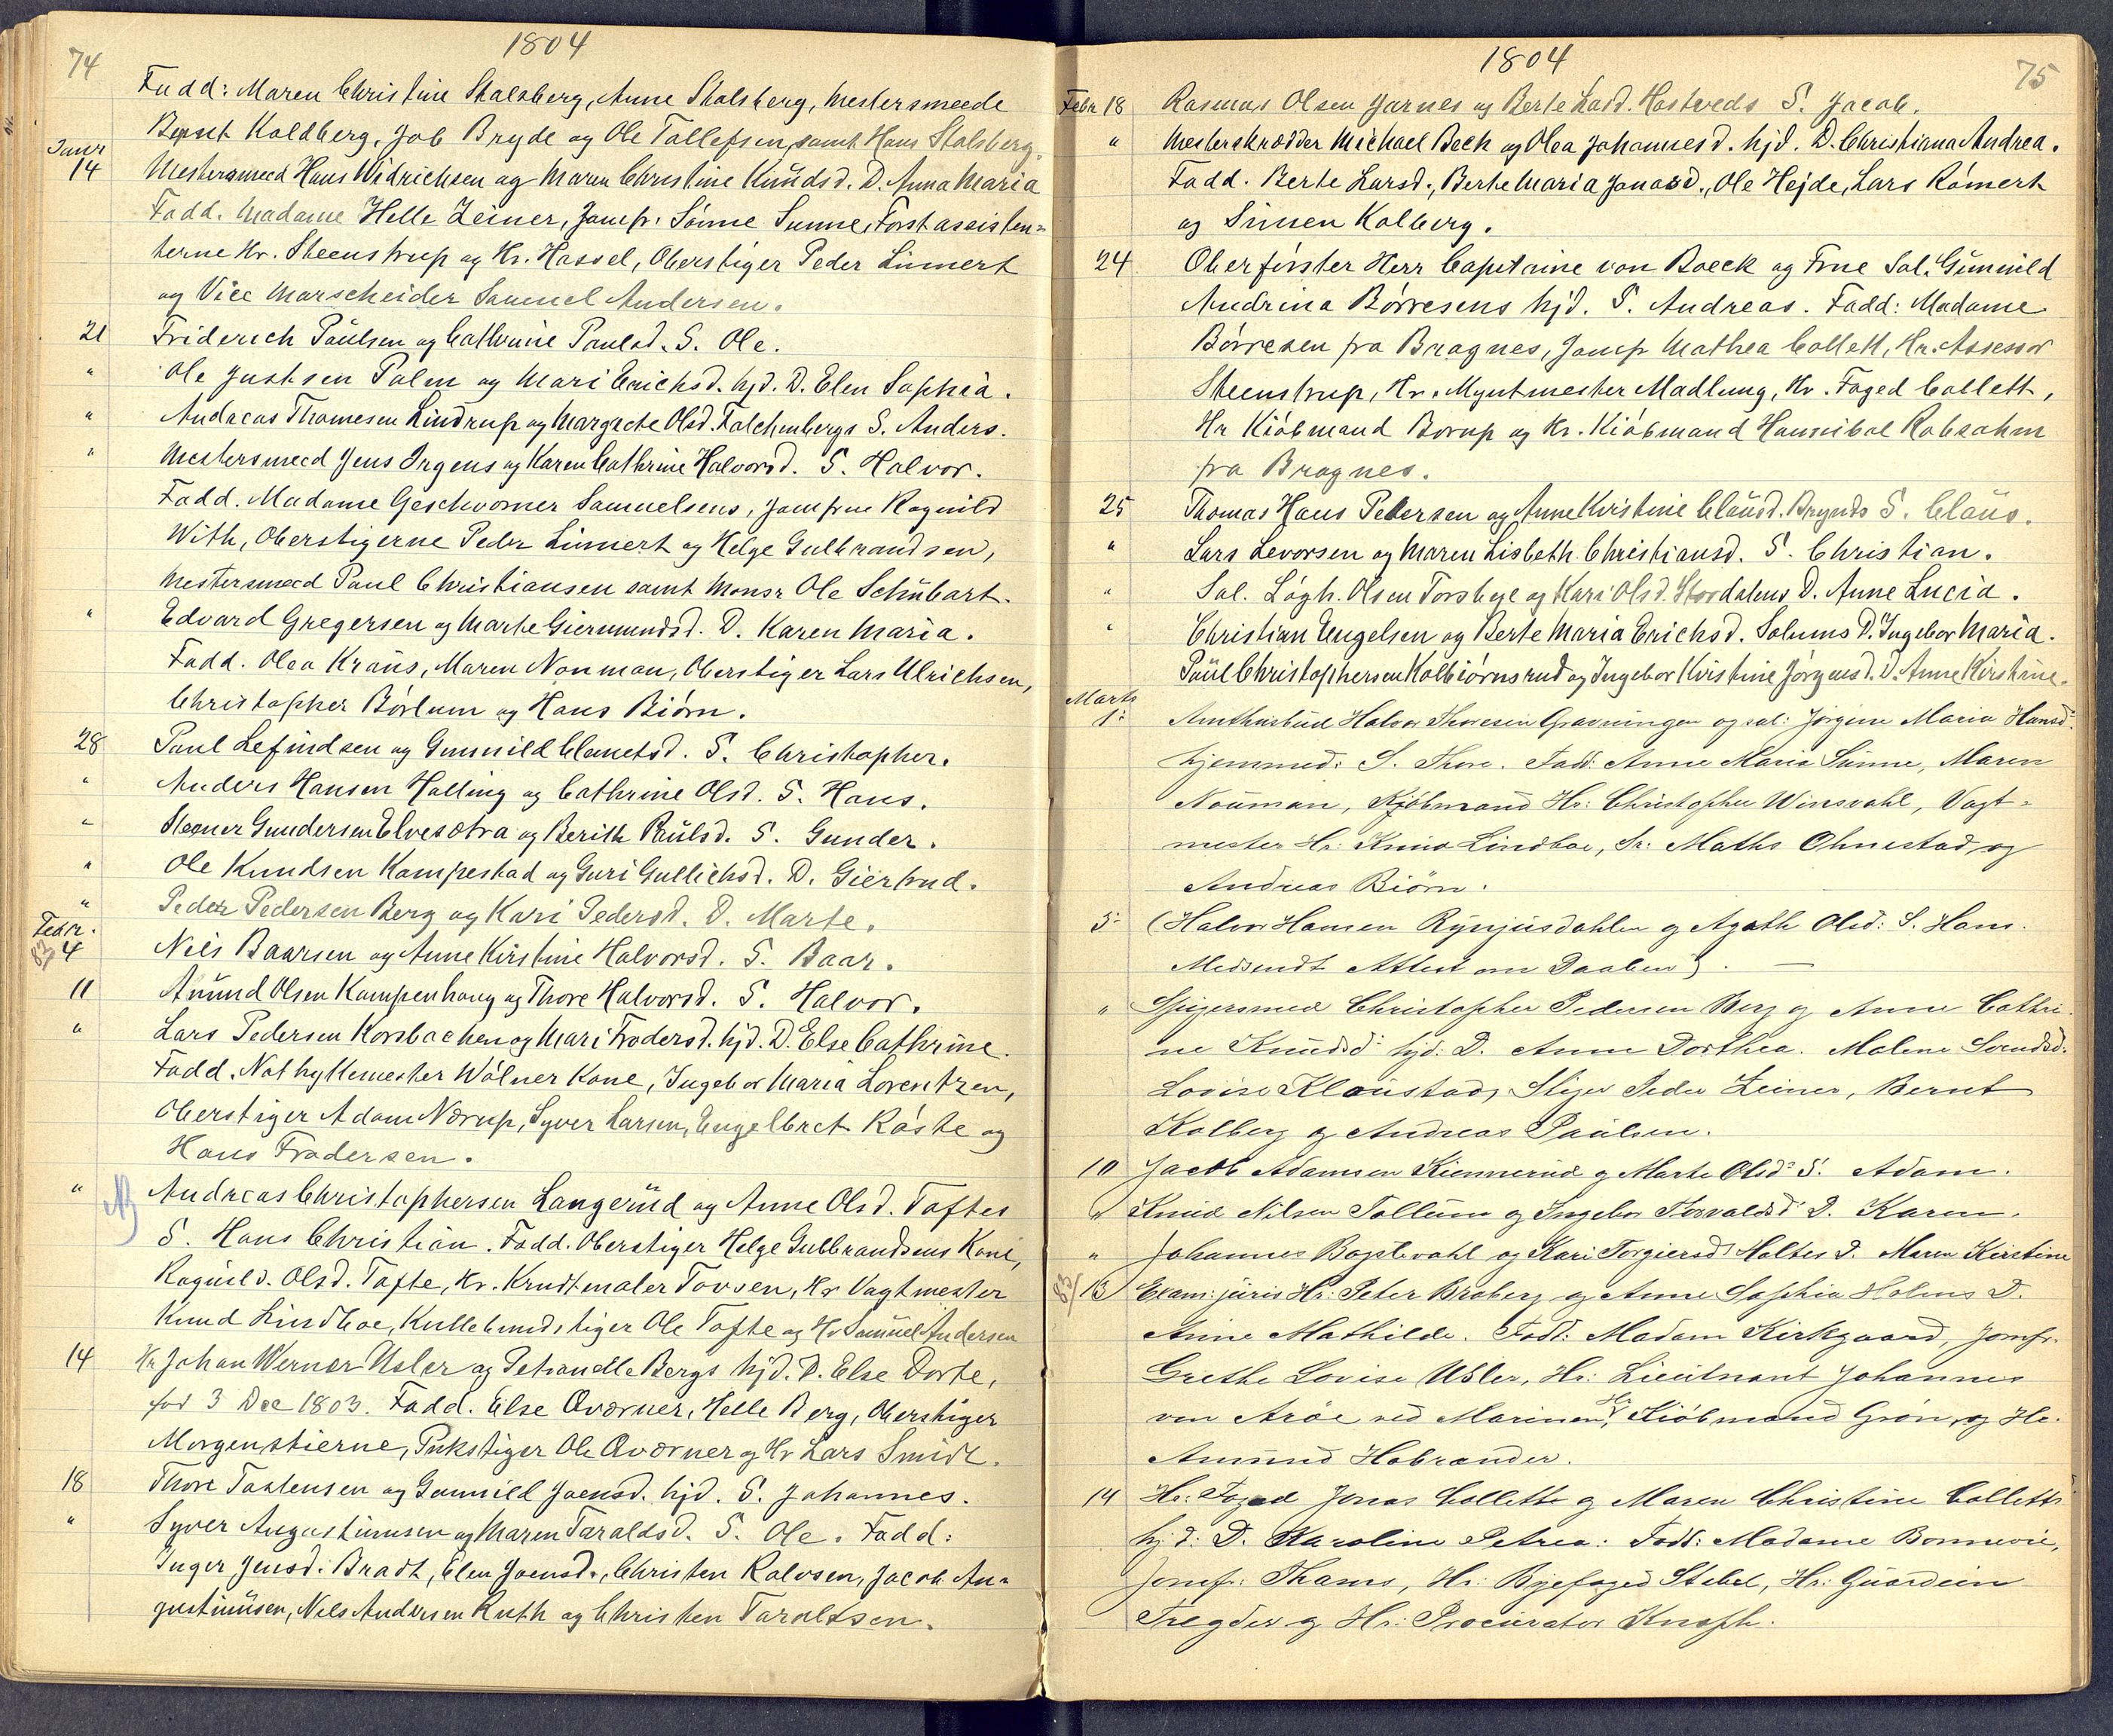 74
1804
Fadd: Maren Christine Stalsberg, Anne Stalsberg, Mestersmeede
Berset Koldberg, Job Bryde og Ole Tollefsen, samt Hans Stalsberg.
Janr
14 Mestersmed Hans Widrichsen og Maren Christine Knüdsd. D. Anna Maria
Fadd. Madame Helle Zeiner, Jomfr. Sónne Sunne, Forstassisten=
terne Hr. Steenstrup og Hr. Hassel, Oberstiger Peder Linnert
og Vice Marscheider Samuel Andersen.
21 Friderich Paülsen og Cathrine Paulsd. S. Ole.
" Ole Justsen Palm og Mari Erichsd. hjd. D. Elen Sophia.
" Andreas Thomesen Lindrup og Margrete Olsd. Falchenbergs S. Anders.
" Mestersmed Jens Irgens og Karen Cathrine Halvorsd. S. Halvor.
Fadd. Madame Geschworner Samuelsens, Jomfrue Ragnild
With, Oberstigerne Peder Linnert og Helge Gulbrandsen,
Mestersmed Paul Christiansen samt Monsr Ole Schübart.
" Edvard Gregersen og Marte Giermundsd. D. Karen Maria.
Fadd. Olea Kraüs, Maren Nonman, Oberstiger Lars Ulrichsen,
Christopher Bórlum og Hans Biórn.
28 Paul Lefindsen og Gunnild Clemetsd. S. Christopher.
" Anders Hansen Halling og Cathrine Olsd. S. Hans.
" Steener Gundersen Elvesætra og Berithe Paülsd. S. Gunder.
" Ole Knudsen Kampestad og Guri Gullichsd. D. Giertrud.
" Peder Pedersen Berg og Kari Pedersd. D. Marte.
Febr.
4 Nils Baarsen og Anne Kirstine Halvorsd. S. Baar.
11 Amünd Olsen Kampenhaug og Thore Halvorsd. S. Halvor.
" Lars Pedersen Korsbacken og Mari Frodersd. hjd. D. Else Cathrine.
Fadd. Nathyttemester Wólner Kone, Ingebor Maria Lorentzen,
Oberstiger Adam Nørup, Syver Larsen, Engelbret Róste og
Hans Fradersen.
" NB Andreas Christophersen Langerüd og Anne Olsd. Toftes
S. Hans Christian. Fadd. Oberstiger Helge Gulbrandsens Kone,
Ragnild Olsd. Tofte, Hr. Krudtmaler Tovsen, Hr Vagtmester
Knud Lindboe, Kullebrudstiger Ole Tofte og Hr Samüel Andersen
14 Hr Johan Werner Usler og Petronelle Bergs hjd. D. Else Dorte,
fød 3 Dec 1803. Fadd. Else Qværner, Helle Berg, Oberstiger
Morgenstierne, Pukstiger Ole Qværner og Hr Lars Smidt.
18 Thore Tostensen og Gunnild Joensd. hjd. S. Johannes.
" Syver Augustinusen og Maren Taraldsd. S. Ole. Fadd:
Inger Jensd. Bradt, Elen Joensd., Christen Kalvsen, Jacob Au=
gustinusen, Nels Andersen Ruth og Christen Taraldsen.
1804
75
Febr 18 Rasmus Olsen Jarnes og Berte Larsd. Hostveds S. Jacob.
" Mesterskrædder Michael Beck og Olea Johannesd. hjd. D. Christiana Andrea.
Fadd. Berte Larsd., Berte Maria Jonasd., Ole Hejde, Lars Rómert
og Simen Kolberg.
24 Oberførster Herr Capitaine von Boeck og Frue Sal. Gunnild
Andrina Børresens hjd. S. Andreas. Fadd: Madame
Børresen fra Bragnes, Jomfr Mathea Collett, Hr. Assessor
Steenstrup, Hr. Myntmester Madlung, Hr. Foged Collett,
Hr Kiøbmand Borup og Hr. Kiøbmand Hannibal Robsahm
fra Bragnes.
25 Thomas Hans Pedersen og Anne Kirstine Claüsd. Brynds S. Claüs.
" Lars Levorsen og Maren Lisbeth Christiansd. S. Christian.
" Sal. Lógh. Olsen Torsbye og Kari Olsd. Stordalens D. Anne Lucia.
" Christian Engelsen og Berte Maria Erichsd. Solums D. Ingebor Maria.
Paül Christophersen Kolbiørnsrud og Ingebor Kirstine Jørgensd. D. Anne Kirstine.
Marts
1: Amtsbud Halvor Thoresen Gravningen og sal: Jørgine Maria Hansd:
hjemmed: S. Thore. Fadd: Anne Maria Sünne, Maren
Noüman, Kjøbmand Hr: Christopher Winsvahl, Vagt=
mester Hr: Knüd Lindboe, Sr: Maths Ohnestad, og
Andreas Biørn.
5: (Halvor Hansen Rünjüsdahlen og Agathe Olsd: S. Hans.
Medsendt Attest om Daaben). —
" Spigersmed Christopher Pedersen Berg og Anne Cathri-
ne Knüdsd: hjd: D. Anne Dorthea. Malene Svendsd:
Lovise Klaüstad, Stiger Peder Zeiner, Bernt
Kolberg og Andreas Paülsen.
10 Jacob Adamsen Kiennerüd og Marte Olsd: S. Adam.
" Knüd Nilsen Tollüm og Ingebor Thorvaldsd D. Karen.
" Johannes Bøjstevahl og Kari Torgiersd Holtes D. Maren Kirstine
13 Exam: jüris Hr: Peter Broberg og Anne Sophia Holms D.
Anne Mathilde. Fadd: Madam Kirkgaard, Jomfr.
Grethe Lovise Usler, Hr: Lieütnant Johannes
von Aröe ved Marinen, Hr Kiøbmand Grøn, og Hr.
Amünd Habrander.
14 Hr: Foged Jonas Collett og Maren Christine Colletts
hjd: D. Karoline Petrea. Fadd: Madame Bonnevie,
Jomfr: Thams, Hr: Byefoged Stibel, Hr: Güardein
Tregder og Hr: Procürator Knoph.